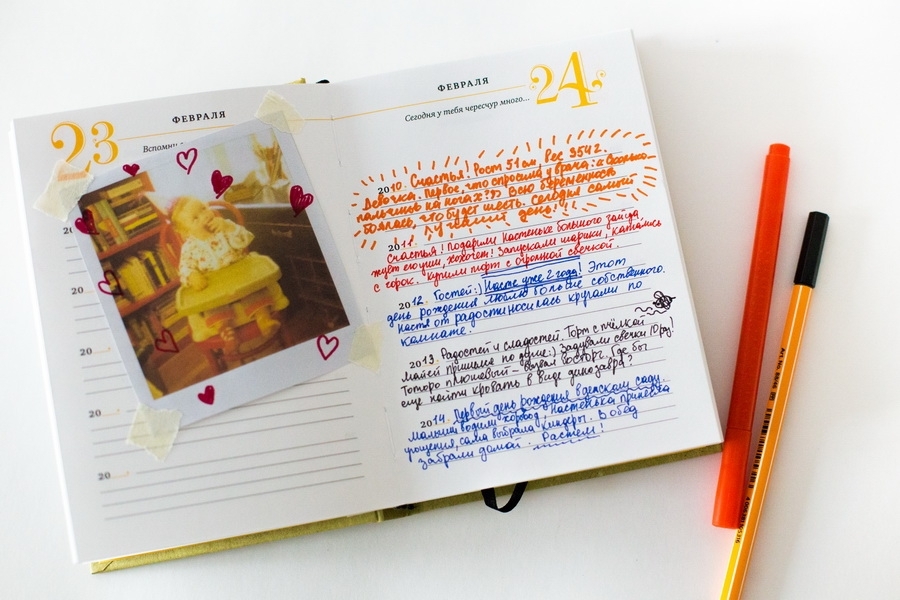 23
ФЕВРАЛЯ
Вспомни
20
20
20
20
20
ФЕВРАЛЯ
24
Сегодня у тебя чересчур много...
2010. Счастья! Рост 51 см, Вес 3542.
Девочка. Первое, что спросила у врача: «Сколько
пальчиков на ногах??» Всю беременность
боялась, что будет шесть. Сегодня самый
лучший день!!!
2011.
Счастья! Подарили Настеньке большого зайца.
жует его уши, хохочет! Запускали шарики, катались
с горок. Купили торт с огромной свечкой.
2012. Гостей:) Насте уже 2 года! Этот
день рождения люблю больше собственного.
Настя от радости носилась кругами по
комнате.
2013. Радостей и сладостей. Торт с пчёлкой
Майей пришёлся по душе:) Задували свечки 10 раз!
Тоторо плюшевый - вызвал восторг. Где бы
ещё найти кровать в виде динозавра?
2014. Первый день рождения в детском саду.
Малыши водили хоровод, Настенька принесла
угощения, сама выбрала Киндеры. В обед
забрали домой. Растем!